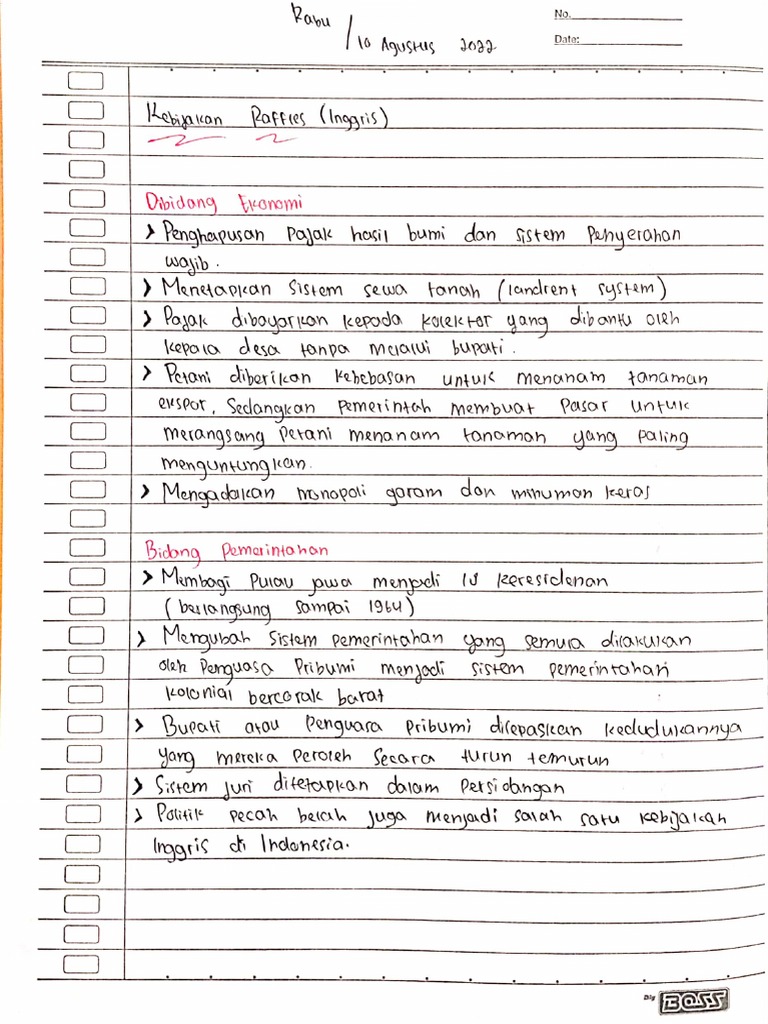 Rabu / 10 Agustus 2022
No.
Date:
Kebijakan Raffles (Inggris)
Dibidang Ekonomi
> Penghapusan Pajak hasil bumi dan sistem Penyerahan
wajib.
> Menetapkan Sistem sewa tanah (landrent system)
> Pajak dibayarkan kepada kolektor yang dibantu oleh
kepala desa tanpa melalui bupati.
> Petani diberikan kebebasan untuk menanam tanaman
ekspor, Sedangkan Pemerintah membuat Pasar untuk
merangsang Petani menanam tanaman yang paling
menguntungkan.
> Mengadakan monopoli garam dan minuman keras
Bidang Pemerintahan
> Membagi Pulau jawa menjadi 18 keresidenan
(berlangsung sampai 1964)
> Mengubah Sistem pemerintahan yang semula dilakukan
oleh Penguasa Pribumi menjadi sistem pemerintahan
kolonial bercorak barat
> Bupati atau Penguasa Pribumi dilepaskan kedudukannya
yang mereka Peroleh Secara turun temurun
> Sistem juri ditetapkan dalam Persidangan
> Politik pecah belah juga menjadi salah satu kebijakan
Inggris di Indonesia.
Big BOSS